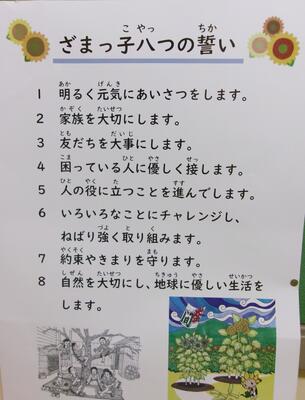 ざまっ子八つの誓い
1 明るく元気にあいさつをします。
2 家族を大切にします。
3 友だちを大事にします。
4 困っている人に優しく接します。
5 人の役に立つことを進んでします。
6 いろいろなことにチャレンジし、
ねばり強く取り組みます。
7 約束やきまりを守ります。
8 自然を大切にし、地球に優しい生活を
します。